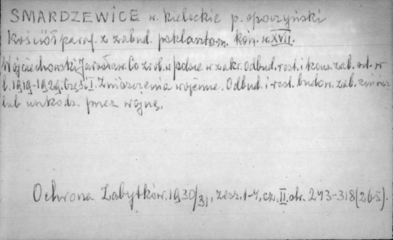 SMARDZEWICE w. kieleckie p. opoczyński
Kościół paraf. z zabud. poklasztorn. kon. w. XVII.
Wojciechowski Jarosław. Co zrob. w Polsce w zakr. odbud. rest. i konw. zab. od. r.
1. 1919-1929. Część I. Zniszczenia wojenne. Odbud. i rest. budow. zab. zniszcz.
lub uszkodz. przez wojnę.
Ochrona Zabytków. 1930/31, zesz. 1-4, cz. II. str. 273-318 (265).